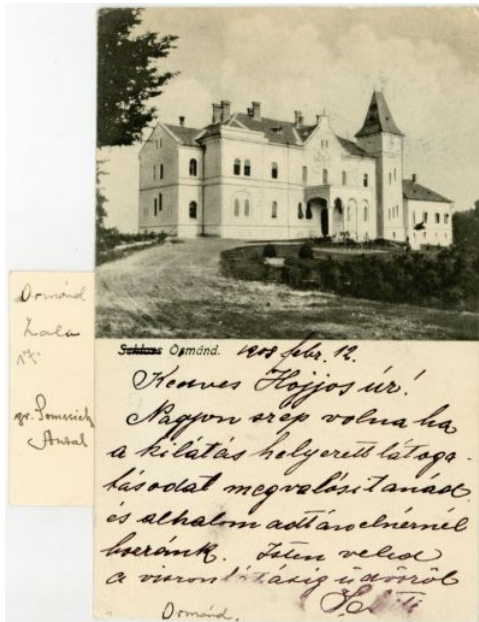 Ormánd
Zala
gr. Somssich
Antal
Schloss Ormánd. 1908 febr. 12.
Kedves Hojjos úr!
Nagyon szep volna ha
a kilátás helyett látoga-
tásodat megvalósitanád
és alkalom adtán
hozzánk. Isten veled
a viszontlátásig üdvözöl
Ormánd.